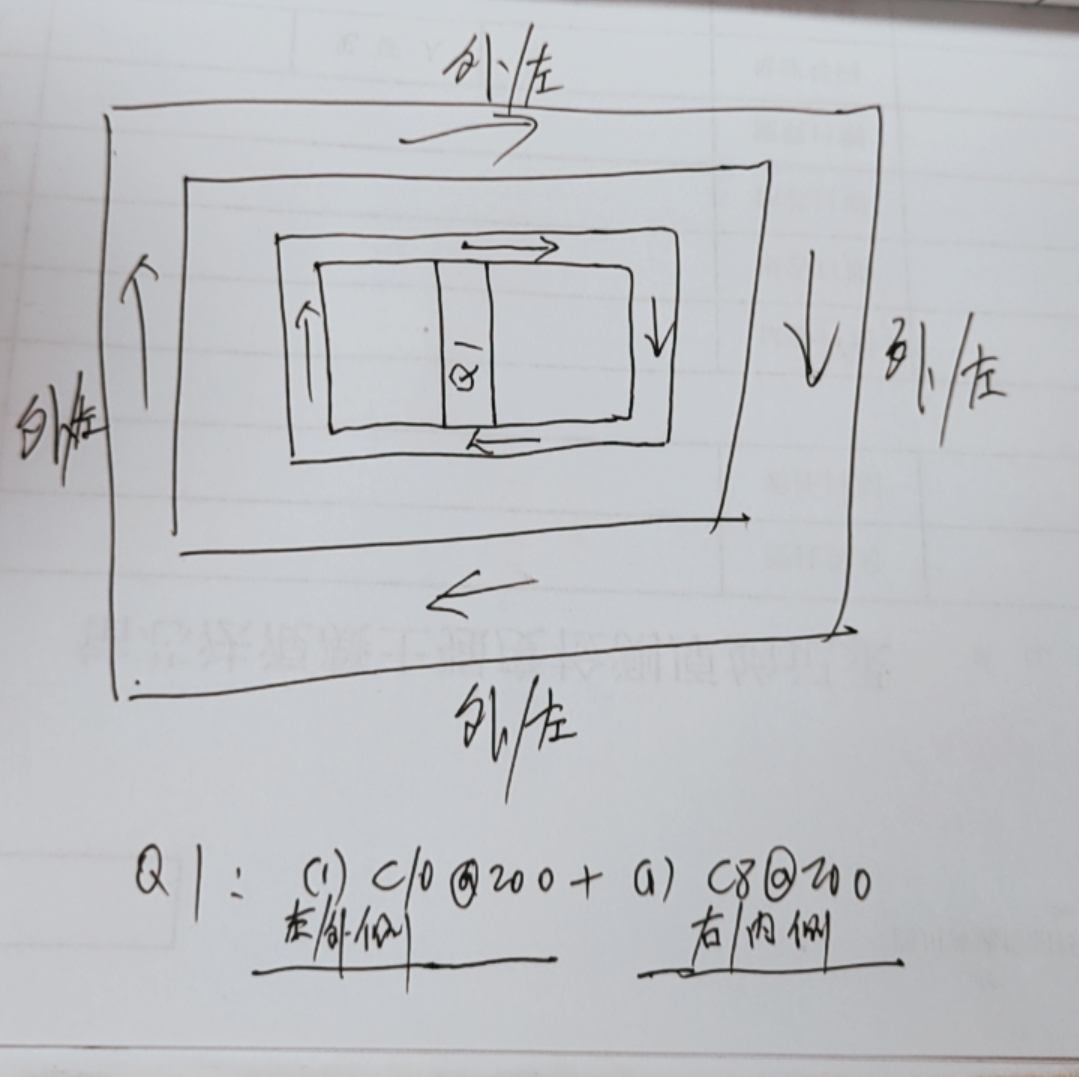 外/左
外/左
外/左
Q1
外/左
Q1: (1) C10@200 + (1) C8@200
左/外侧 右/内侧